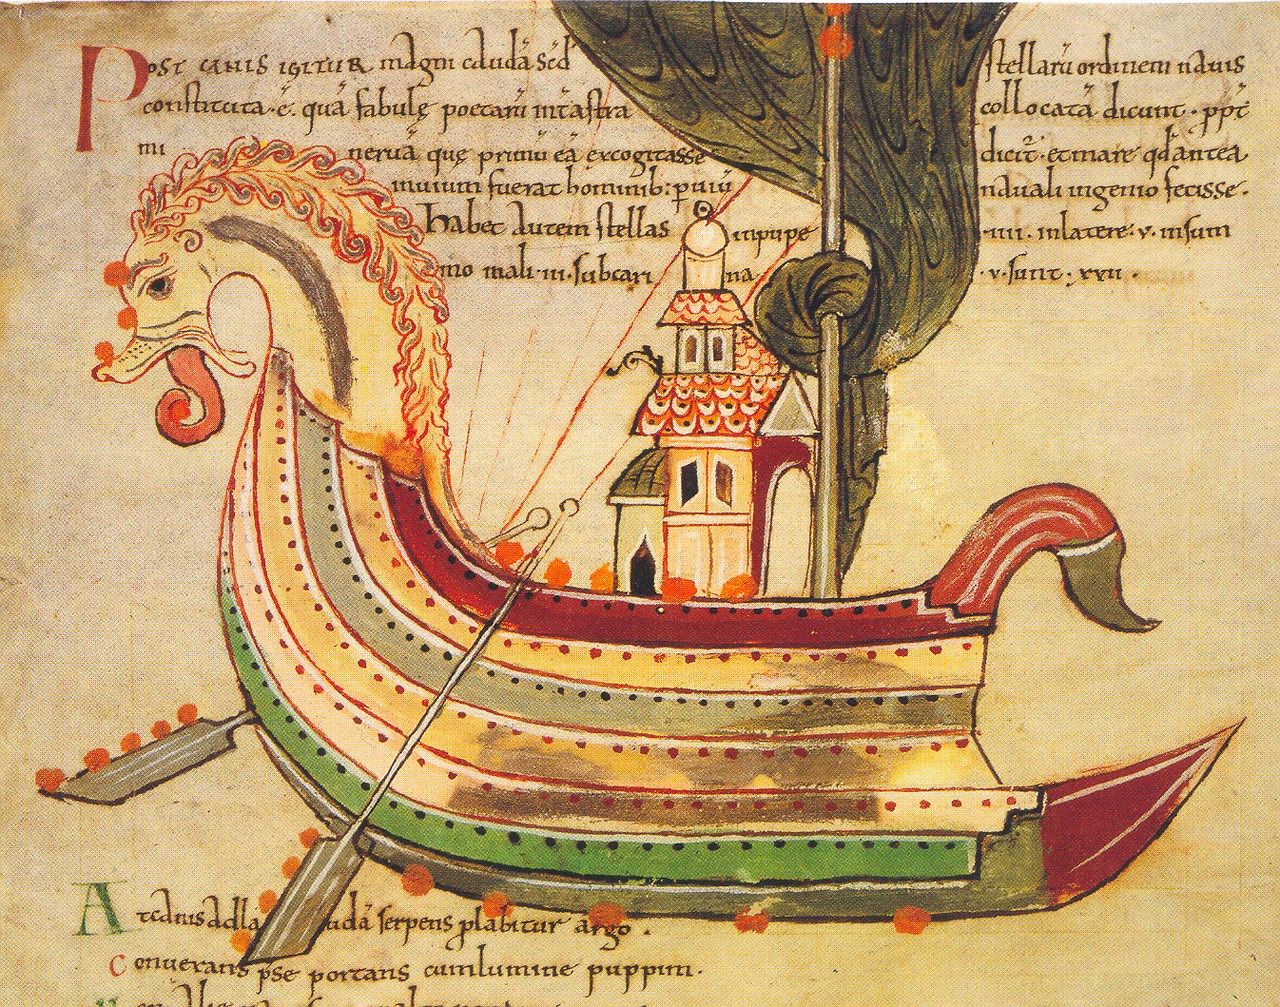 Post canis igitur magni caudā sed stellarū ordinem nauis
constituta·ē· quā fabulę poetarū int̄ astra collocatā dicunt· ppt̄
mineruā quę primū eā excogitasse dicit̄·et mare qd̄ antea
inuium fuerat hominib: puiū nauali ingenio fecisse·
Habet autem stellas in puppe ·iiii· in latere·v· in sum
mo mali·iii·sub cari na ·v·sunt·xxii·
At canis ad caudā serpens plabitur argo·
Conuersam pse portans cum lumine puppim·